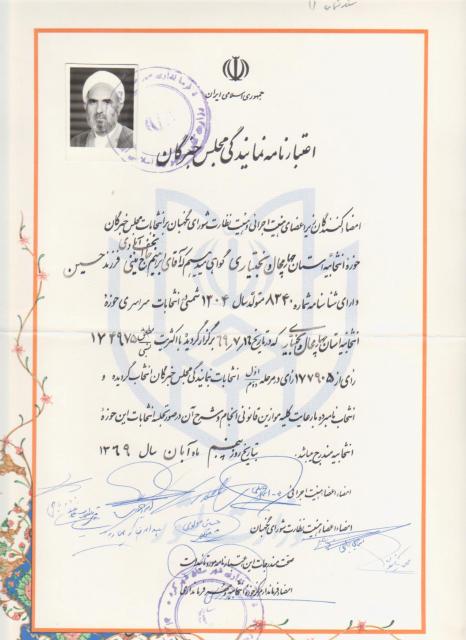 جمهوری اسلامی ایران
اعتبارنامه نمایندگی مجلس خبرگان
امضاکنندگان زیر اعضای هیئت اجرائی و هیئت نظارت شورای نگهبان بر انتخابات مجلس خبرگان
حوزه انتخابیه استان چهارمحال بختیاری گواهی میدهیم که آقای ابراهیم حاج امینی نجف آبادی فرزند حسین
دارای شناسنامه شماره ۸۲۴۰ متولد سال ۱۳۰۴ شمسی انتخابات سراسری حوزه
انتخابیه استان چهارمحال بختیاری که در تاریخ ۶۹٫۷٫۱۶ برگزار گردید با اکثریت مطلق نسبی ۱۷۴۹۷۵
رای از ۱۷۷۹۰۵ رای در مرحله اول دوم انتخابات نمایندگی مجلس خبرگان انتخاب گردیده و
انتخاب نامبرده با رعایت کلیه موازین قانونی انجام و شرح آن در صورتجلسه انتخابات این حوزه
انتخابیه مندرج میباشد. بتاریخ روز پنجم ماه آبان سال ۱۳۶۹
امضاء اعضاء هیئت اجرائی
امضاء اعضاء هیئت نظارت شورای نگهبان
صحت مندرجات این اعتبارنامه مورد تائید است
امضاء فرماندار مرکز حوزه انتخابیه و مهر فرمانداری